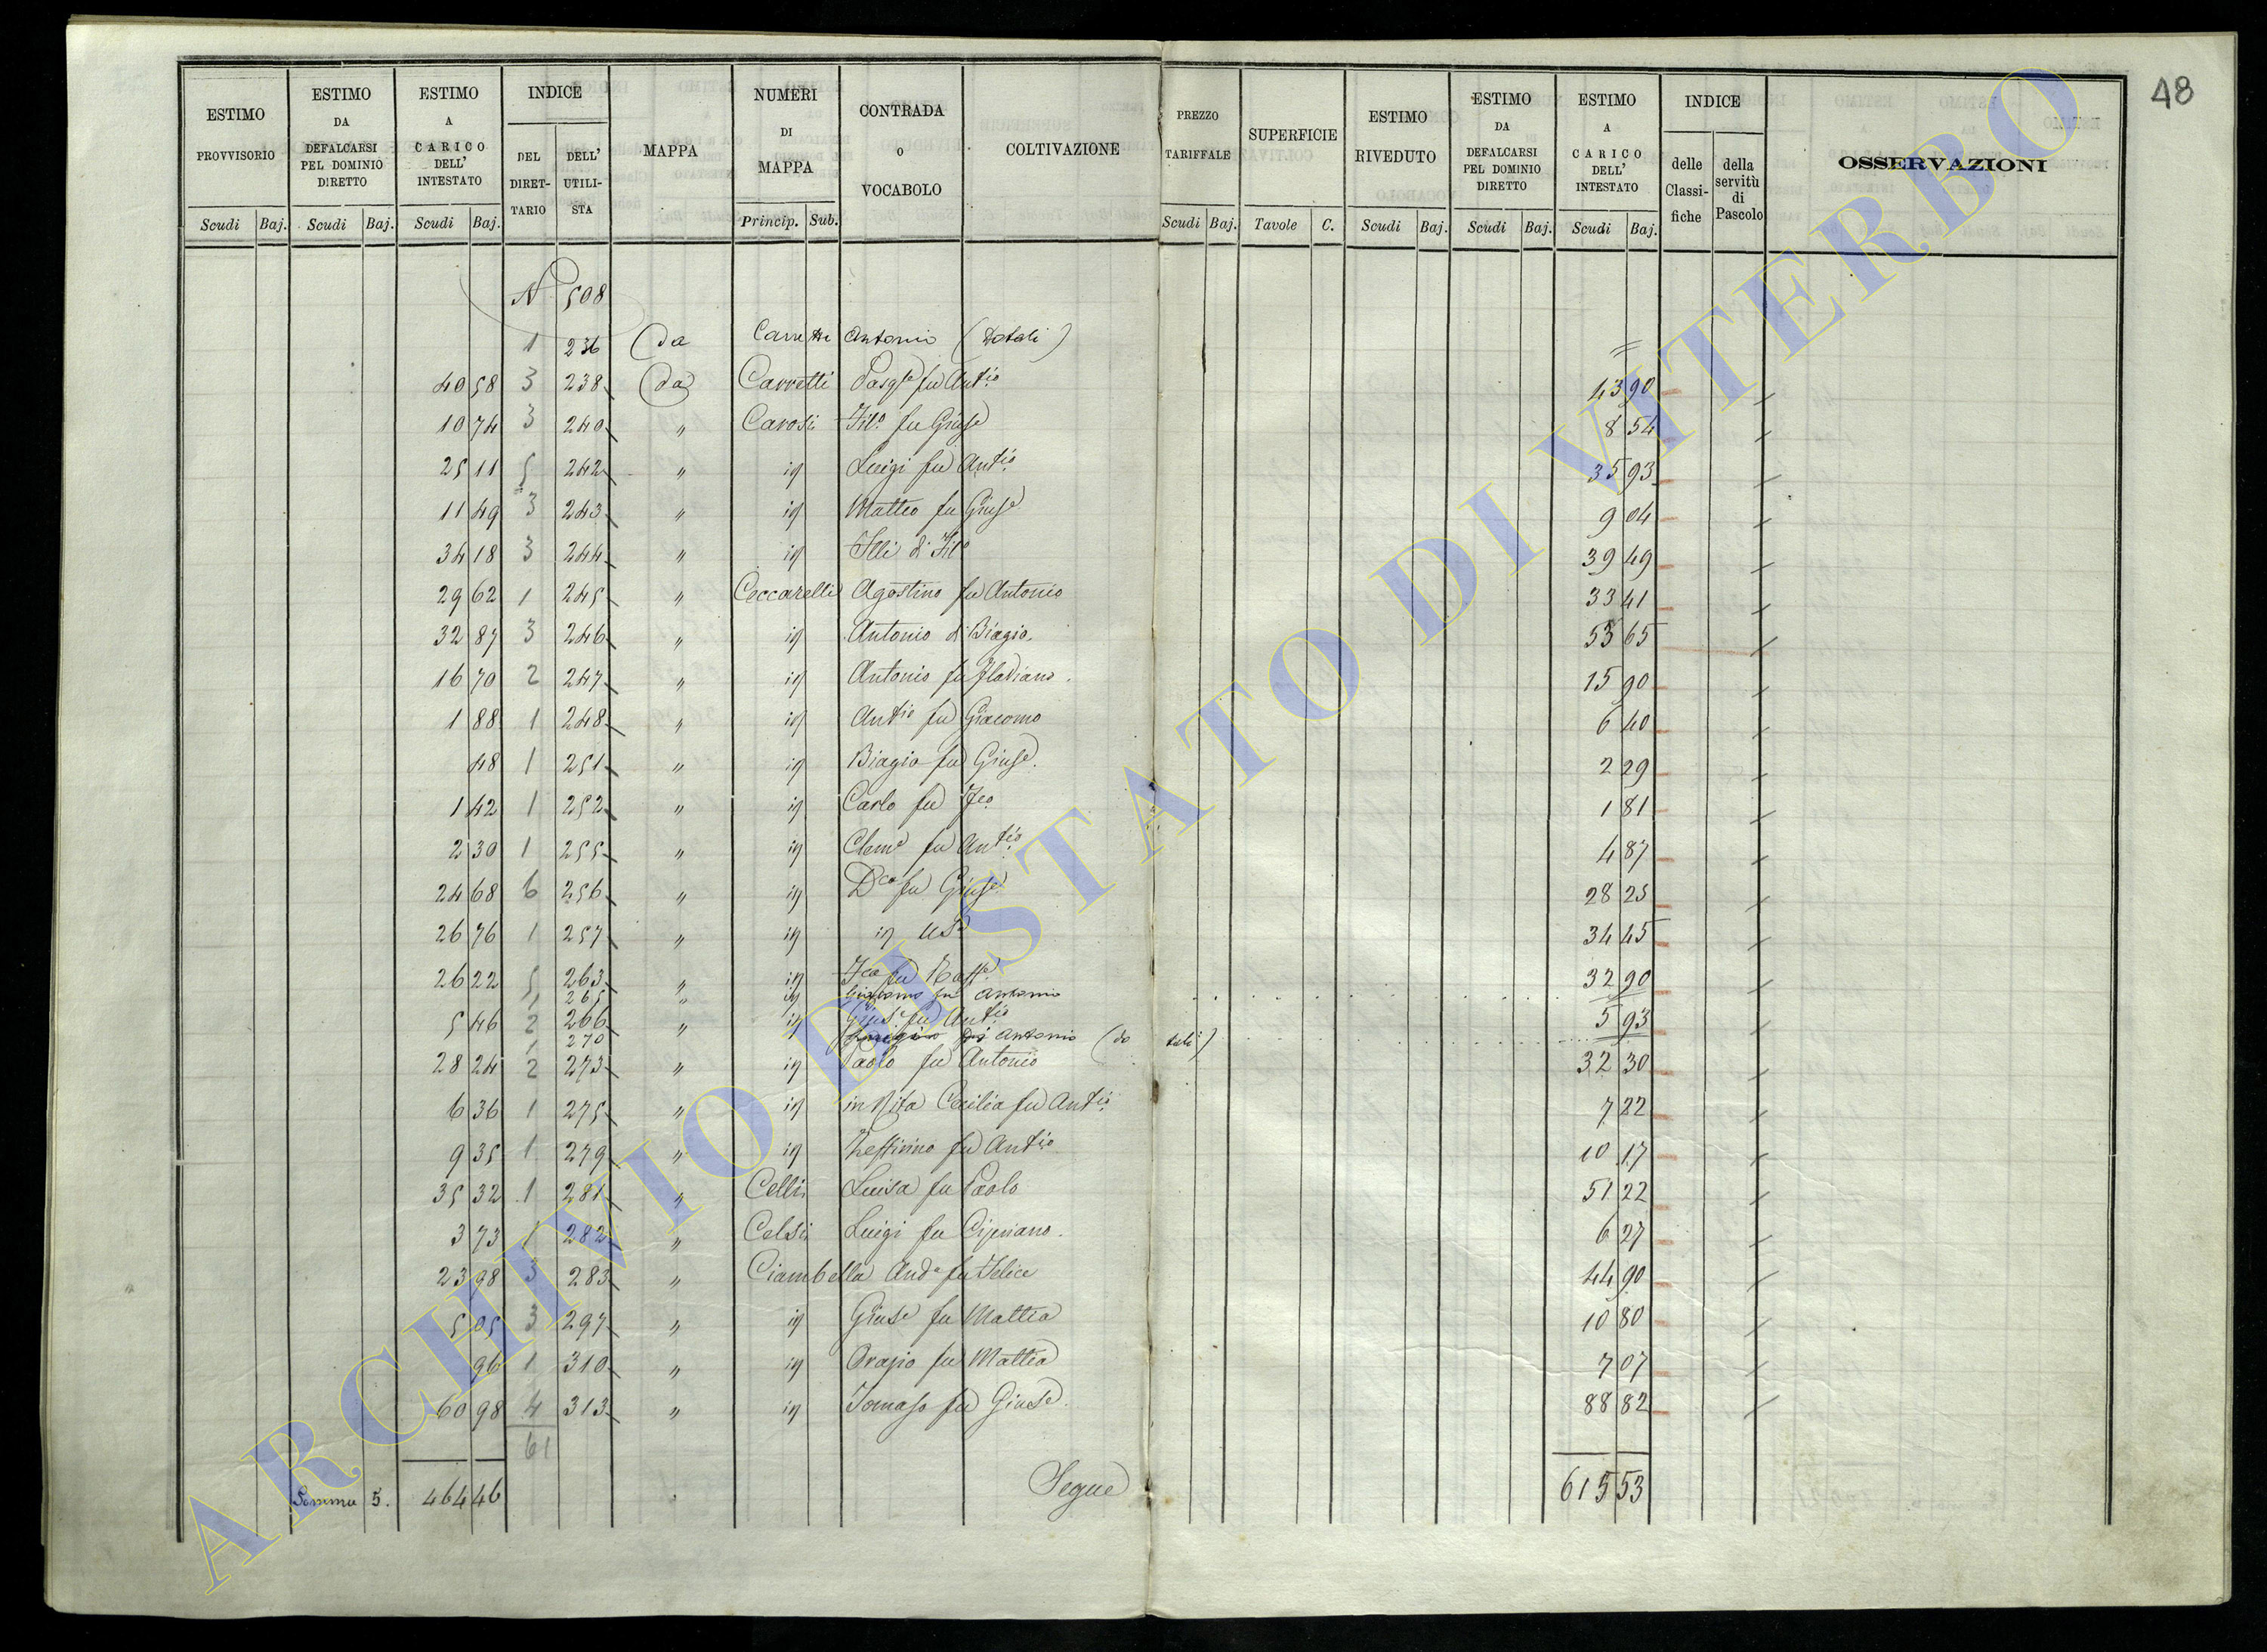 48
ESTIMO PROVVISORIO
ESTIMO DA DEFALCARSI PEL DOMINIO DIRETTO
ESTIMO A CARICO DELL' INTESTATO
INDICE
DEL DIRET- TARIO
DELL' UTILI- STA
MAPPA
NUMERI DI MAPPA
CONTRADA O VOCABOLO
COLTIVAZIONE
PREZZO TARIFFALE
SUPERFICIE
ESTIMO RIVEDUTO
ESTIMO DA DEFALCARSI PEL DOMINIO DIRETTO
ESTIMO A CARICO DELL' INTESTATO
INDICE
delle Classi- fiche
della servitù di Pascolo
OSSERVAZIONI
Scudi Baj. Scudi Baj. Scudi Baj. Princip. Sub. Scudi Baj. Tavole C. Scudi Baj. Scudi Baj. Scudi Baj.
N° 508
1 236 (da Carretti Antonio (Dotali) =
40 58 3 238 (da) Carretti Pasqle fu Antio 43 90
10 74 3 240 " Carosi Filo fu Giuse 8 54
25 11 5 242 " id Luigi fu Antio 35 93
11 49 3 243 " id Matteo fu Giuse 9 04
34 18 3 244 " id Flli di Filo 39 49
29 62 1 245 " Ceccarelli Agostino fu Antonio 33 41
32 87 3 246 " id Antonio di Biagio 53 65
16 70 2 247 " id Antonio fu Flaviano. 15 90
1 88 1 248 " id Antio fu Giacomo 6 40
48 1 251 " id Biagio fu Giuse. 2 29
1 42 1 252 " id Carlo fu Fco 1 81
2 30 1 255 " id Cleme fu Antio 4 87
24 68 6 256 " id Dco fu Giuse 28 25
26 76 1 257 " id id 34 45
26 22 5 263 " id Fco fu Raffe 32 90
1 265 " id Giacomo fu Antonio
5 46 2 266 " id Giuse fu Antio 5 93
1 270 Antonio (do tali)
28 24 2 273 " id Paolo fu Antonio 32 30
6 36 1 275 " id in Rita Cecilia fu Antio 7 22
9 35 1 279 " id Zeffirino fu Antio 10 17
35 32 1 281 " Celli Luisa fu Paolo 51 22
3 73 1 282 " Celsi Luigi fu Cipriano. 6 27
23 98 3 283 " Ciambella Anda fu Felice 44 90
5 05 3 297 " id Giuse fu Mattia 10 80
96 1 310 " id Orazio fu Mattia 7 07
60 98 4 313 " id Tomaso fu Giuse. 88 82
61
Somma 5. 464 46 Segue 615 53
ARCHIVIO DI STATO DI VITERBO